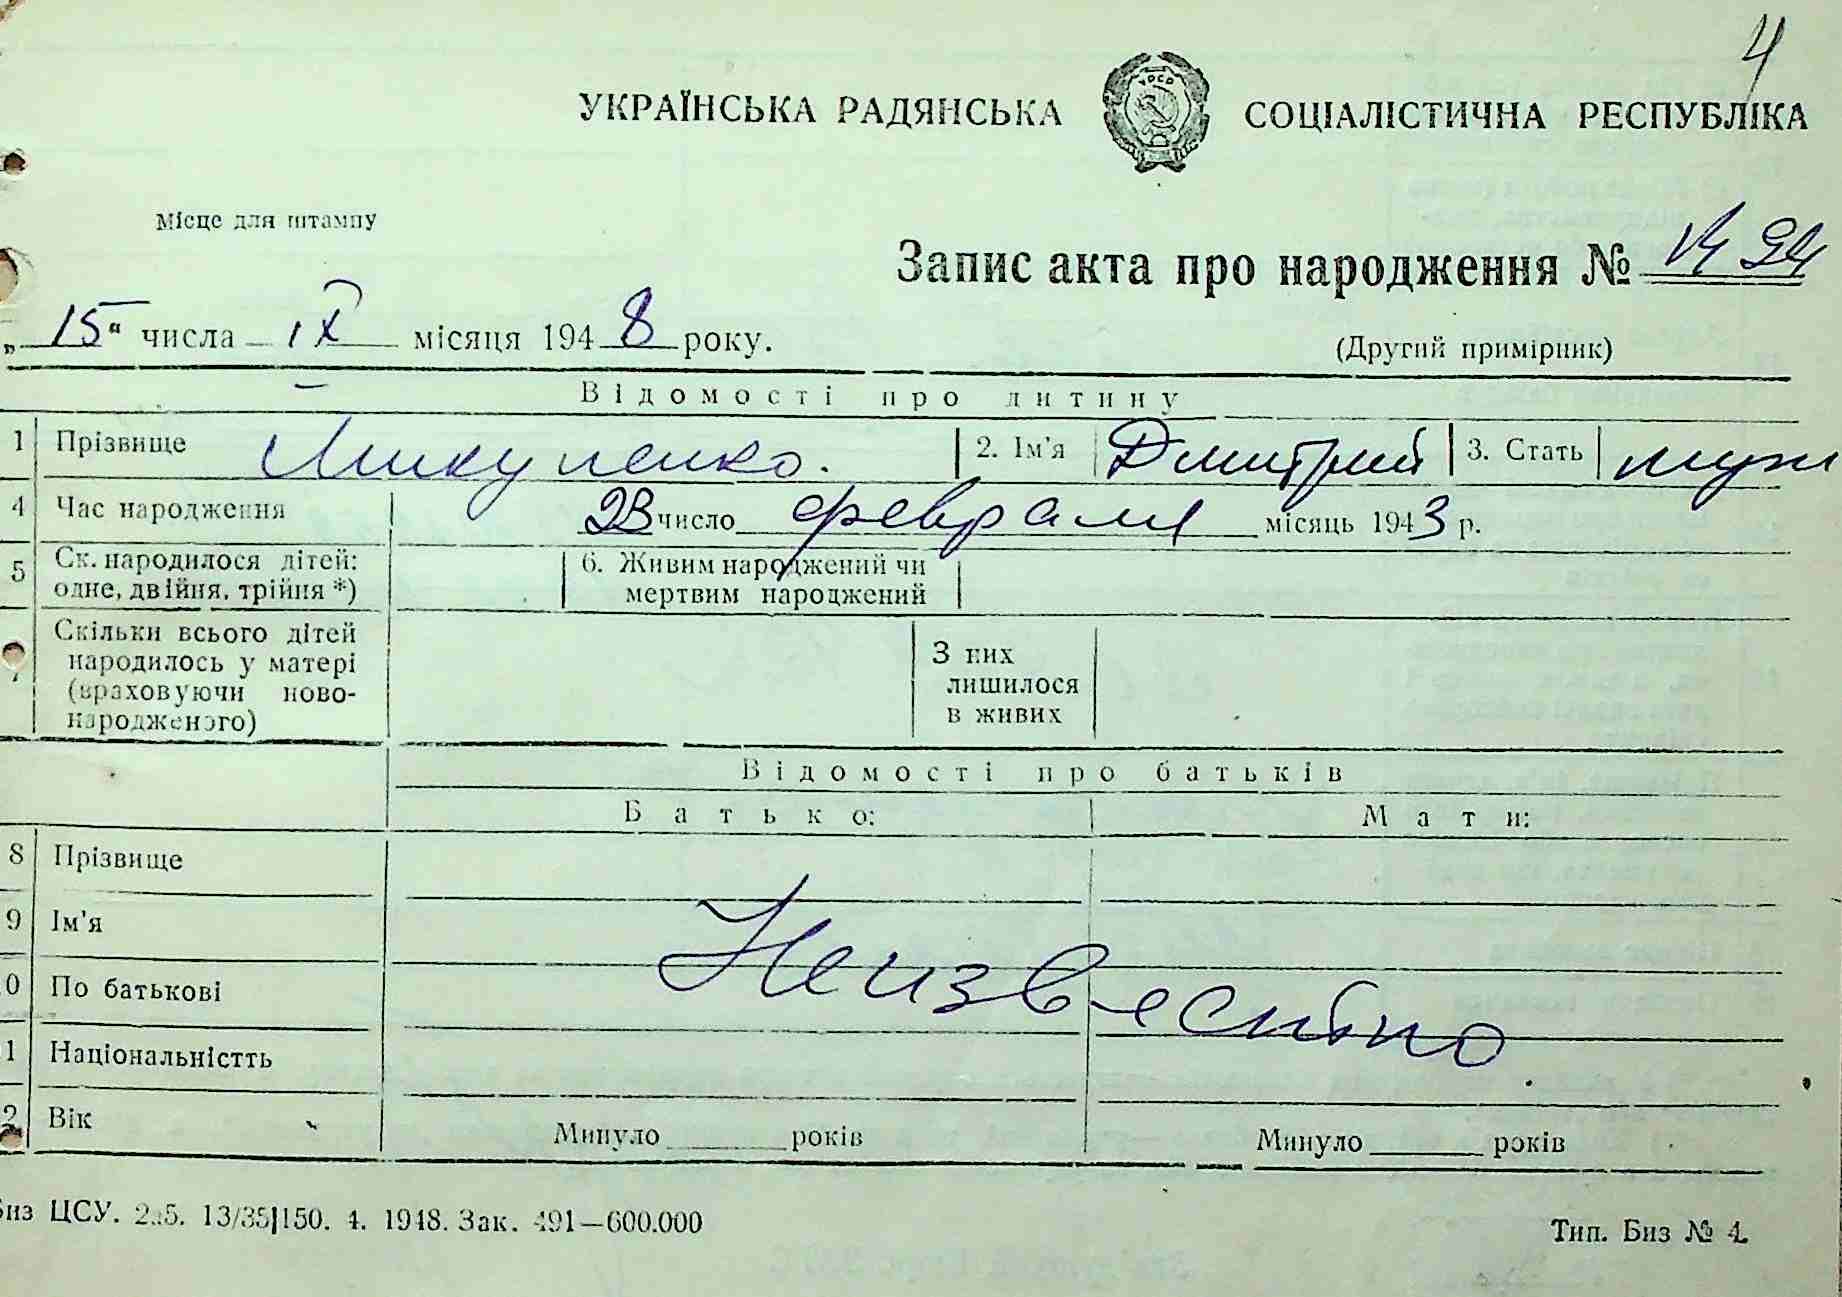 4
УКРАЇНСЬКА РАДЯНСЬКА СОЦІАЛІСТИЧНА РЕСПУБЛІКА
Місце для штампу
Запис акта про народження №
„15“ числа IX місяця 1948 року.
(Другий примірник)
Відомості про дитину
1 Прізвище 2. Ім'я Дмитрий 3. Стать муж
4 Час народження 23 число февраля місяць 1943 р.
5 Ск. народилося дітей: 6. Живим народжений чи
одне, двійня, трійня *) мертвим народжений
Скільки всього дітей
народилось у матері
(враховуючи ново-
народженого)
З них
лишилося
в живих
Відомості про батьків
Батько: Мати:
8 Прізвище
9 Ім'я
0 По батькові
Неизвестно
1 Національністть
2 Вік Минуло років Минуло років
Биз ЦСУ. 2а5. 13/35|150. 4. 1948. Зак. 491—600.000 Тип. Биз № 4